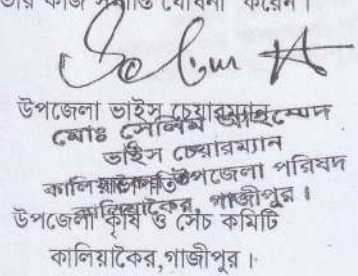 তার কাজ সমাপ্তি ঘোষনা করেন।
Selim A
উপজেলা ভাইস চেয়ারম্যান
মোঃ সেলিম আহম্মেদ
ভাইস চেয়ারম্যান
কালিয়াকৈর উপজেলা পরিষদ
কালিয়াকৈর, গাজীপুর।
উপজেলা কৃষি ও সেচ কমিটি
কালিয়াকৈর,গাজীপুর।